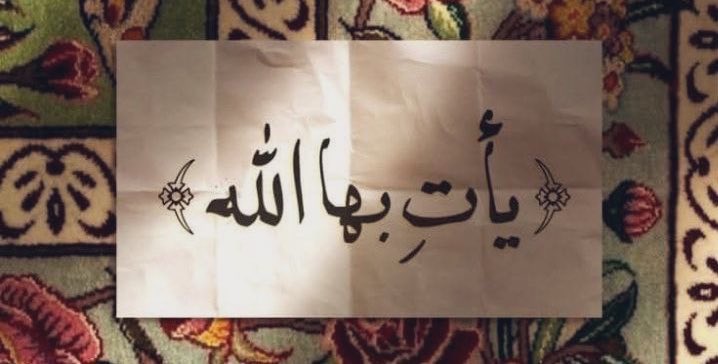 ﴿يأتِ بها الله﴾